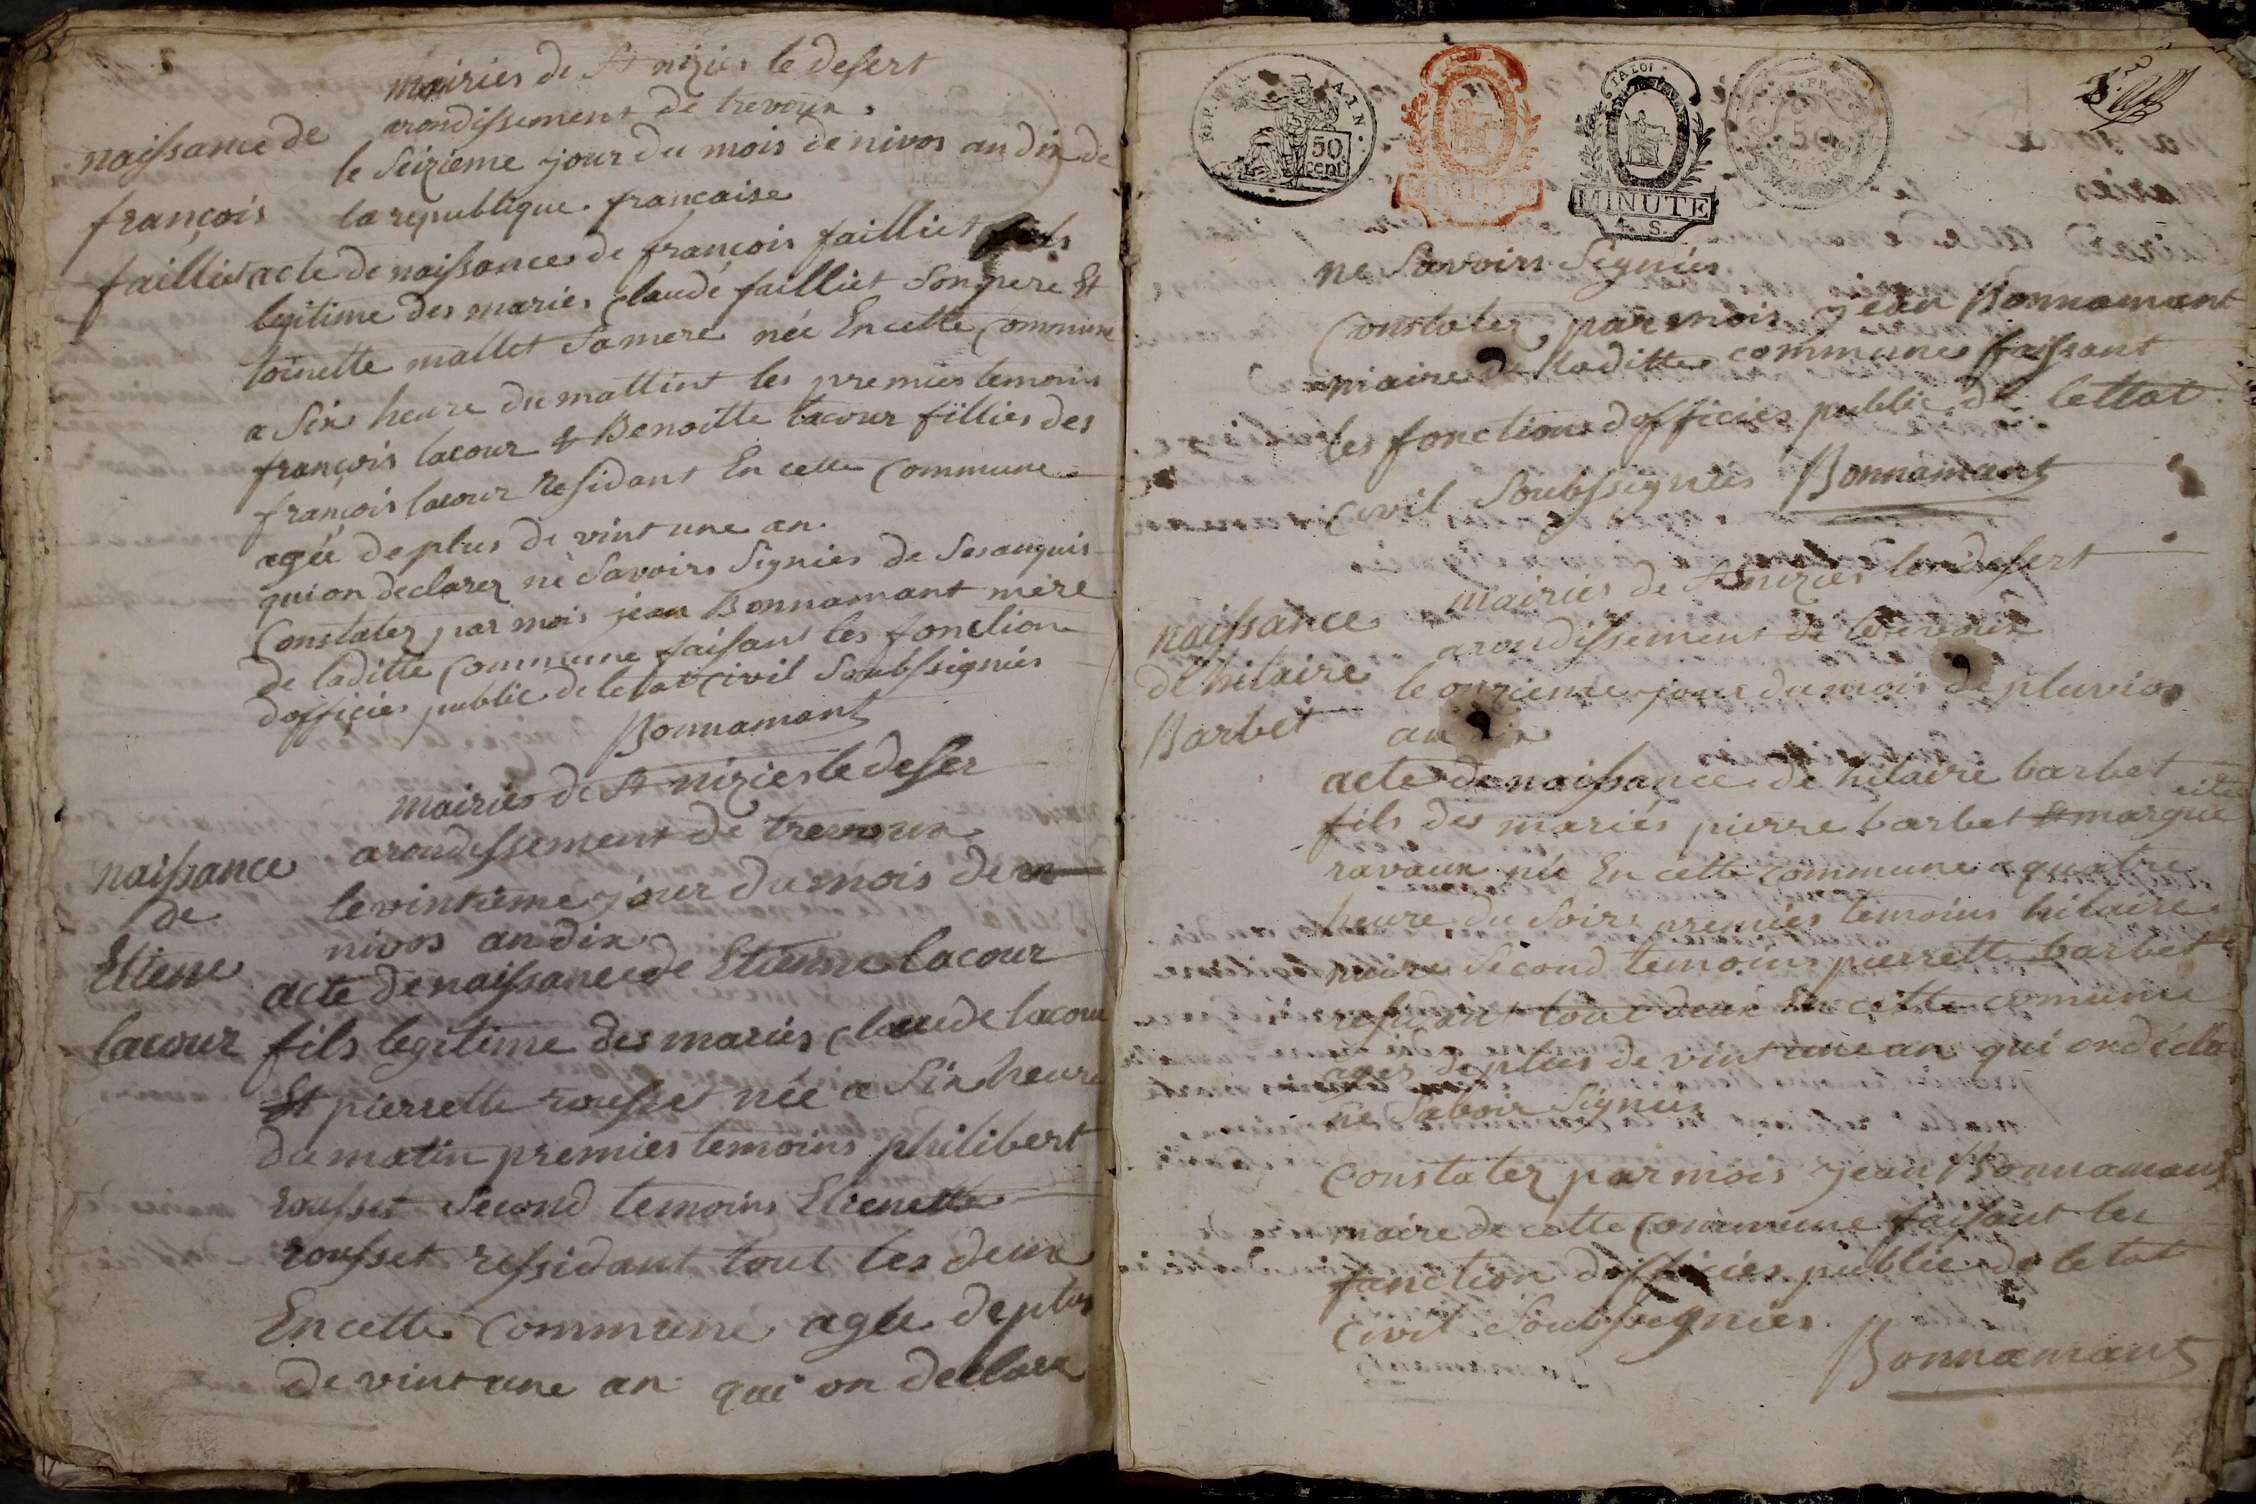 mairies de St nizies le desert
arondissement de trevoux
naissance de
françois
failliet
le Seizieme jour du mois de nivos an dix de
la republique francaise
acte de naissance de françois failliet fils
legitime des maries Claude failliet Son pere Et
toinette mallet Samere née En cette Commune
a Six heure du mattint les premies temoins
françois lacour & Benoitte lacour fillies des
françois lacour residant En cette Commune
agéé deplus de vint une an
qui on declarez ne Savoirs Signies de Sesanquis
Constatez par mois jean Bonnamant mere
de laditte Commune faisant les fonction
dofficies public de letat Civil Soubssigniés
Bonnamant
mairies de St nizies le deser
arondissement de trevoux
naissance
de
Etiene
lacour
le vintieme jour du mois de n
nivos an dix
acte de naissance de Etienne lacour
fils legitime des maries Claude lacour
Et pierrette rousset née a Six heure
du matin premies temoins philibert
rousset Second temoins Etienette
rousset ressidant tout les deux
En cette Commune agéé deplus
de vint une an qui on declare
REP. FRA. AIN.
50
cent
MINUTE
LA LOI
MINUTE
4. S.
50
ne Savoirs Signiés
Constatez par mois jean Bonnamant
maire de laditte commune faissant
les fonction dofficies public de lettat
Civil Soubssigniés Bonnamant
mairies de St nizies le desert
arondissement de trevoux
naissance
de hilaire
Barbet
le onzieme jour du mois de pluvios
an dix
acte de naissance de hilaire barbet
fils des mariés pierre barbet Et margue
rite
ravaux née En cette Commune a quatre
heure du Soirs premies temoins hilaire
moire Second temoins pierrette barbet
residant tout deux En cette comune
ages deplus de vint une an qui on décla
ne Saboir Signies
Constatez par mois jean Bonnamant
maire de cette Commune faisant les
fonction dofficies public de letat
Civil Soubsignies
Bonnamant